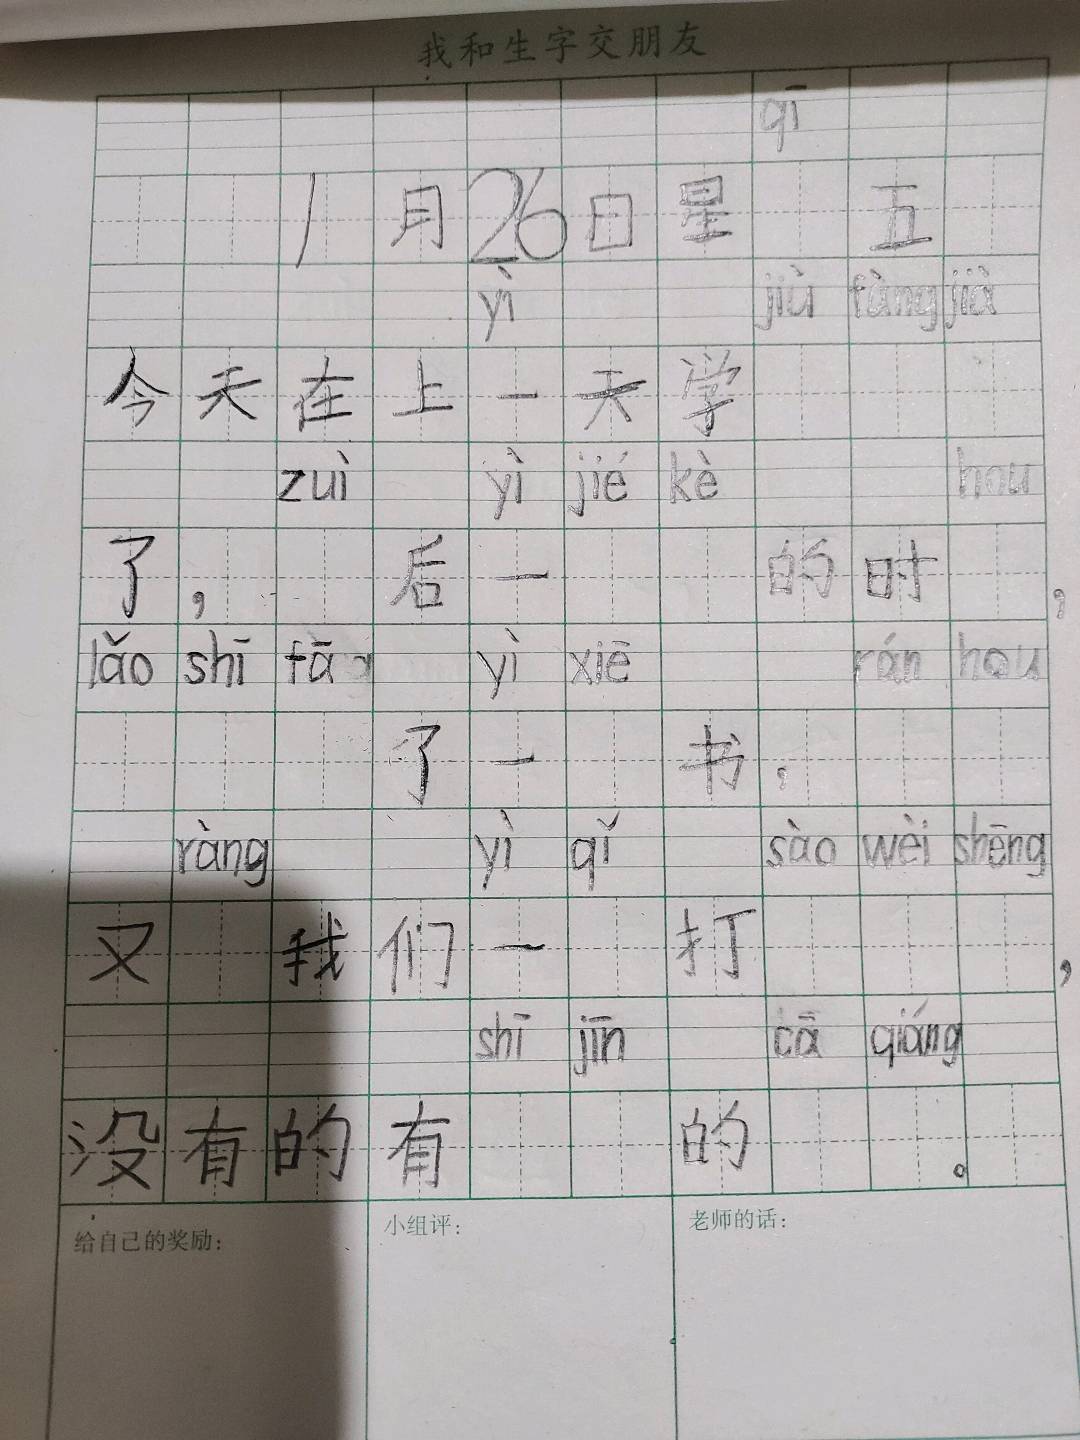 我和生字交朋友
qī
1月26日星 五
yì jiù fàng jià
今天在上一天学
zuì yì jié kè hou
了, 后一 的时 ,
lǎo shī fā yì xiē rán hou
了一 书,
ràng yì qǐ sào wèi shēng
又 我们一 打 ,
shī jīn cā qiáng
没有的有 的 。
给自己的奖励: 小组评: 老师的话: